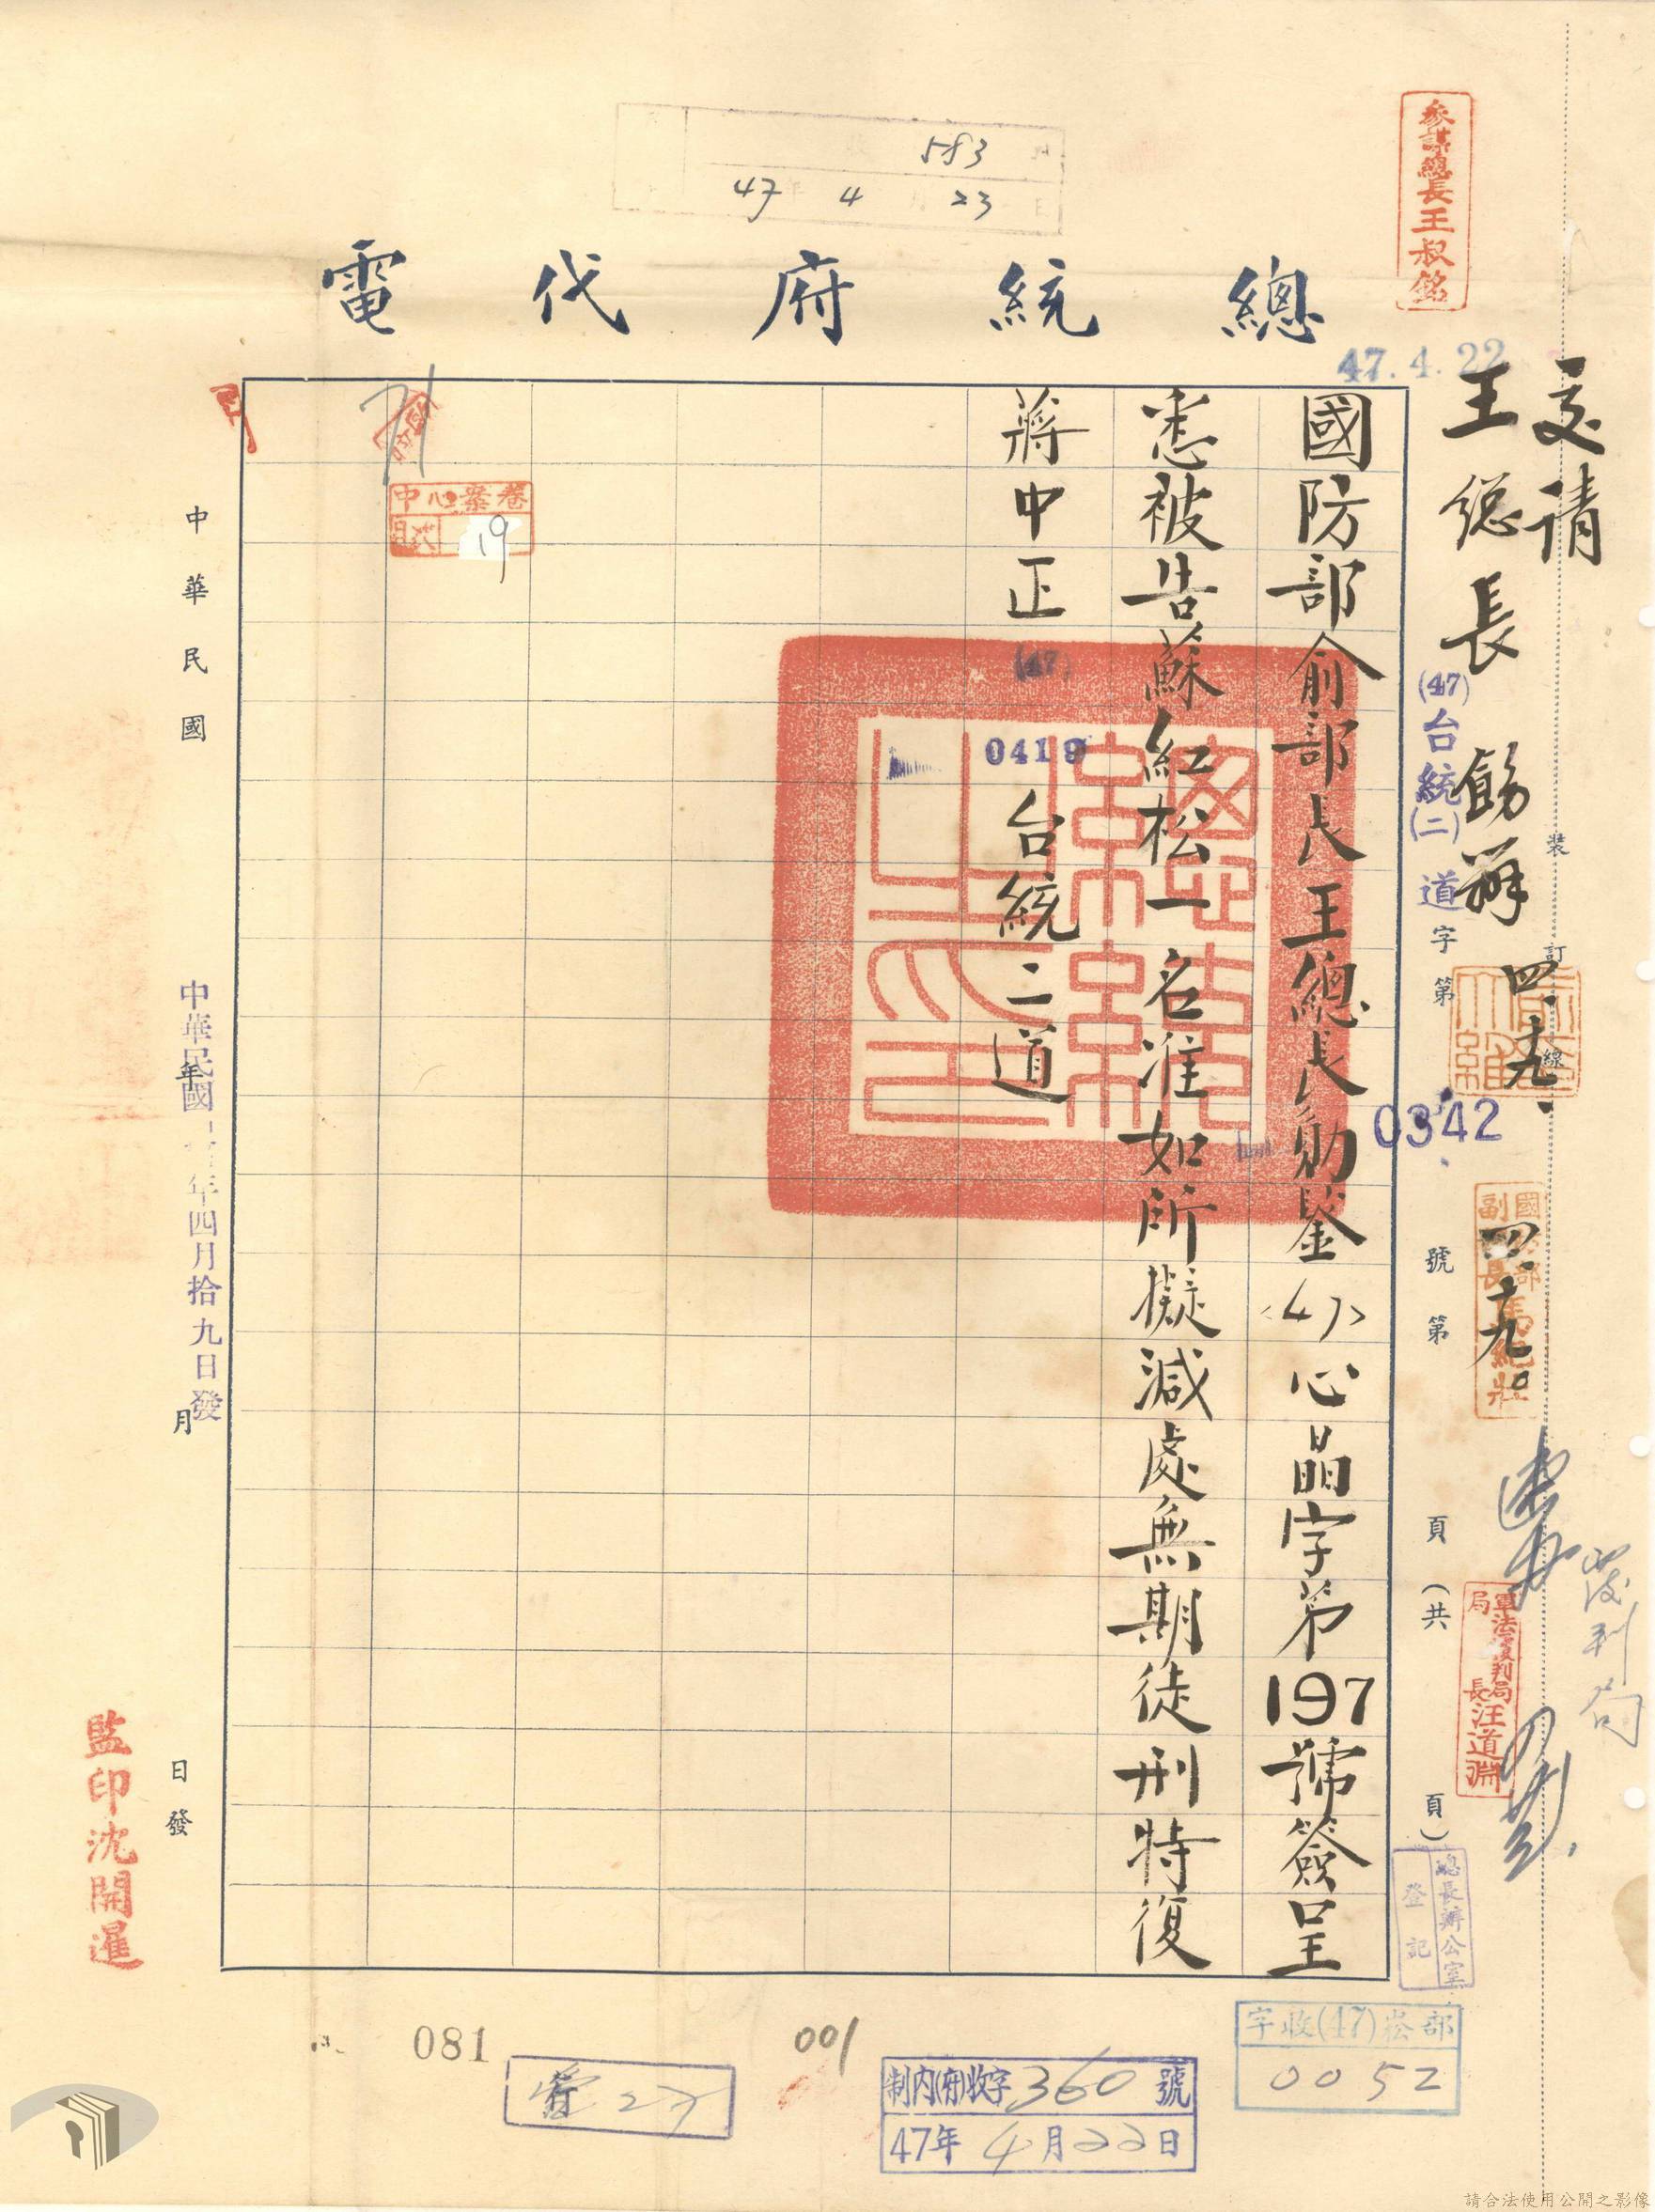 583
47年4月23日
參謀總長王叔銘
總統府代電
47.4.22
交請
王總長飭辦
四.十九.
四.十九.
(47)台統(二)道字第
0342
號第
頁(共
頁)
裝
訂
線
國防部副部長馬紀壯
軍法覆判局局長汪道淵
總長辦公室
登記
國防部俞部長王總長勛鑒〈47〉心晶字第197號簽呈
悉被告蘇紅松一名准如所擬減處無期徒刑特復
蔣中正
(47)
0419
台統二道
總統之印
71
中心案卷
目次
19
中華民國
年
月
日發
年四月拾九日發
監印沈開運
081
001
部崧(47)收字
0052
制內(府)收字360號
47年4月22日
請合法使用公開之影像